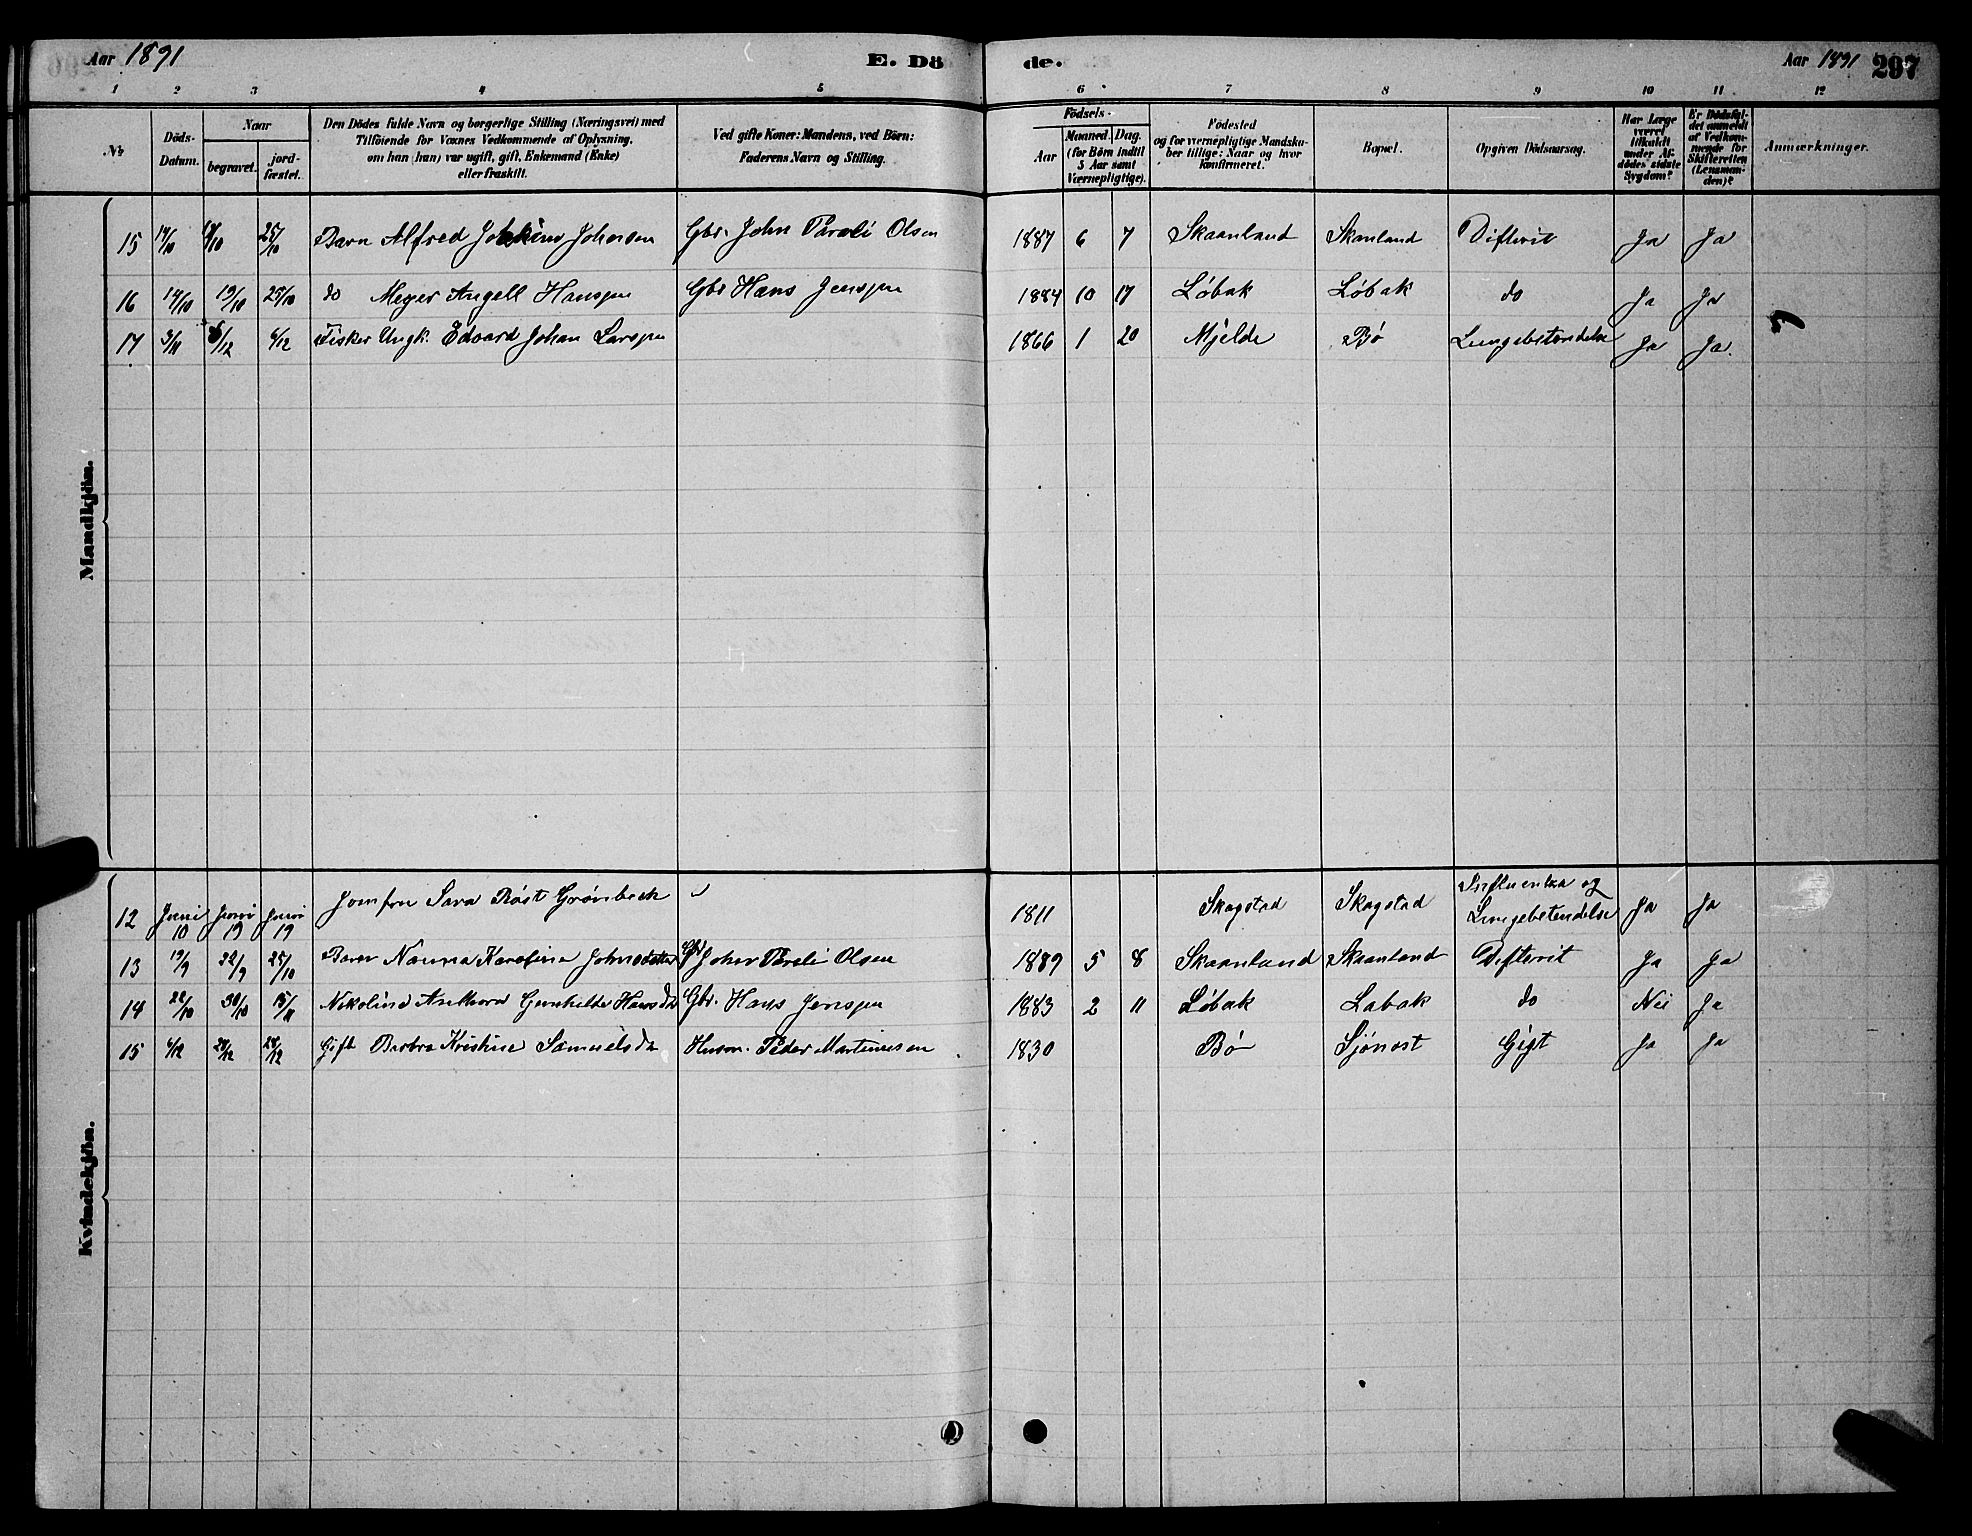 Aar 1891 E. Dö de. Aar 1891 297
1 2 3 4 5 6 7 8 9 10 11 12
No
Döds-Datum.
Naar
begravet.
jord-fæstet.
Den Dödes fulde Navn og borgerlige Stilling (Næringsvei) med
Tilföiende for Voxnes Vedkommende af Oplysning,
om han (hun) var ugift, gift, Enkemand (Enke)
eller fraskilt.
Ved gifte Koner: Mandens, ved Börn:
Faderens Navn og Stilling.
Födsels-
Aar
Maaned. Dag.
(for Börn indtil
5 Aar samt
Værnepligtige).
Födested
og for vernepligtige Mandska-
ber tillige: Naar og hvor
konfirmeret.
Bopæl.
Opgiven Dödsaarsag.
Har Læge
været
tilkaldt
under Af-
dödes sidste
Sygdom?
Er Dödsfal-
det anmeldt
af Vedkom-
mende for
Skifteretten
(Lensman-
den)?
Anmærkninger.
Mandkjön.
15 14/10 18/10 25/10 Barn Alfred Johnsen Gbr. John Olsen 1887 6 7 Skaanland Skanland Difterit Ja Ja
16 14/10 19/10 25/10 do Meyer Angell Hansen Gbr Hans Jensen 1884 10 17 Løbak Løbak do Ja Ja
17 3/11 6/12 6/12 Fisker Ungk. Edvard Johan Larsen 1866 1 20 Mjelde Bø Lungebetændelse Ja Ja.
Kvindekjön.
12 Juni 10 Juni 19 Juni 19 Jomfru Sara Røst Grønbech 1811 Skagstad Skagstad Influentza og
Lungebetendelse Ja Ja
13 19/9 22/9 25/10 Barn Nanna Karoline Johnsdatter Gbr John Olsen 1889 5 8 Skaanland Skaanland Difterit Ja Ja
14 22/10 30/10 15/11 Nikoline Gunhilde Hansdtr Gbr. Hans Jensen 1883 2 11 Løbak Løbak do Nei Ja
15 4/12 28/12 28/12 Gift Barbra Kristine Samuelsdtr Husm. Peder Martinusen 1830 Bø Sjønost Gigt Ja Ja